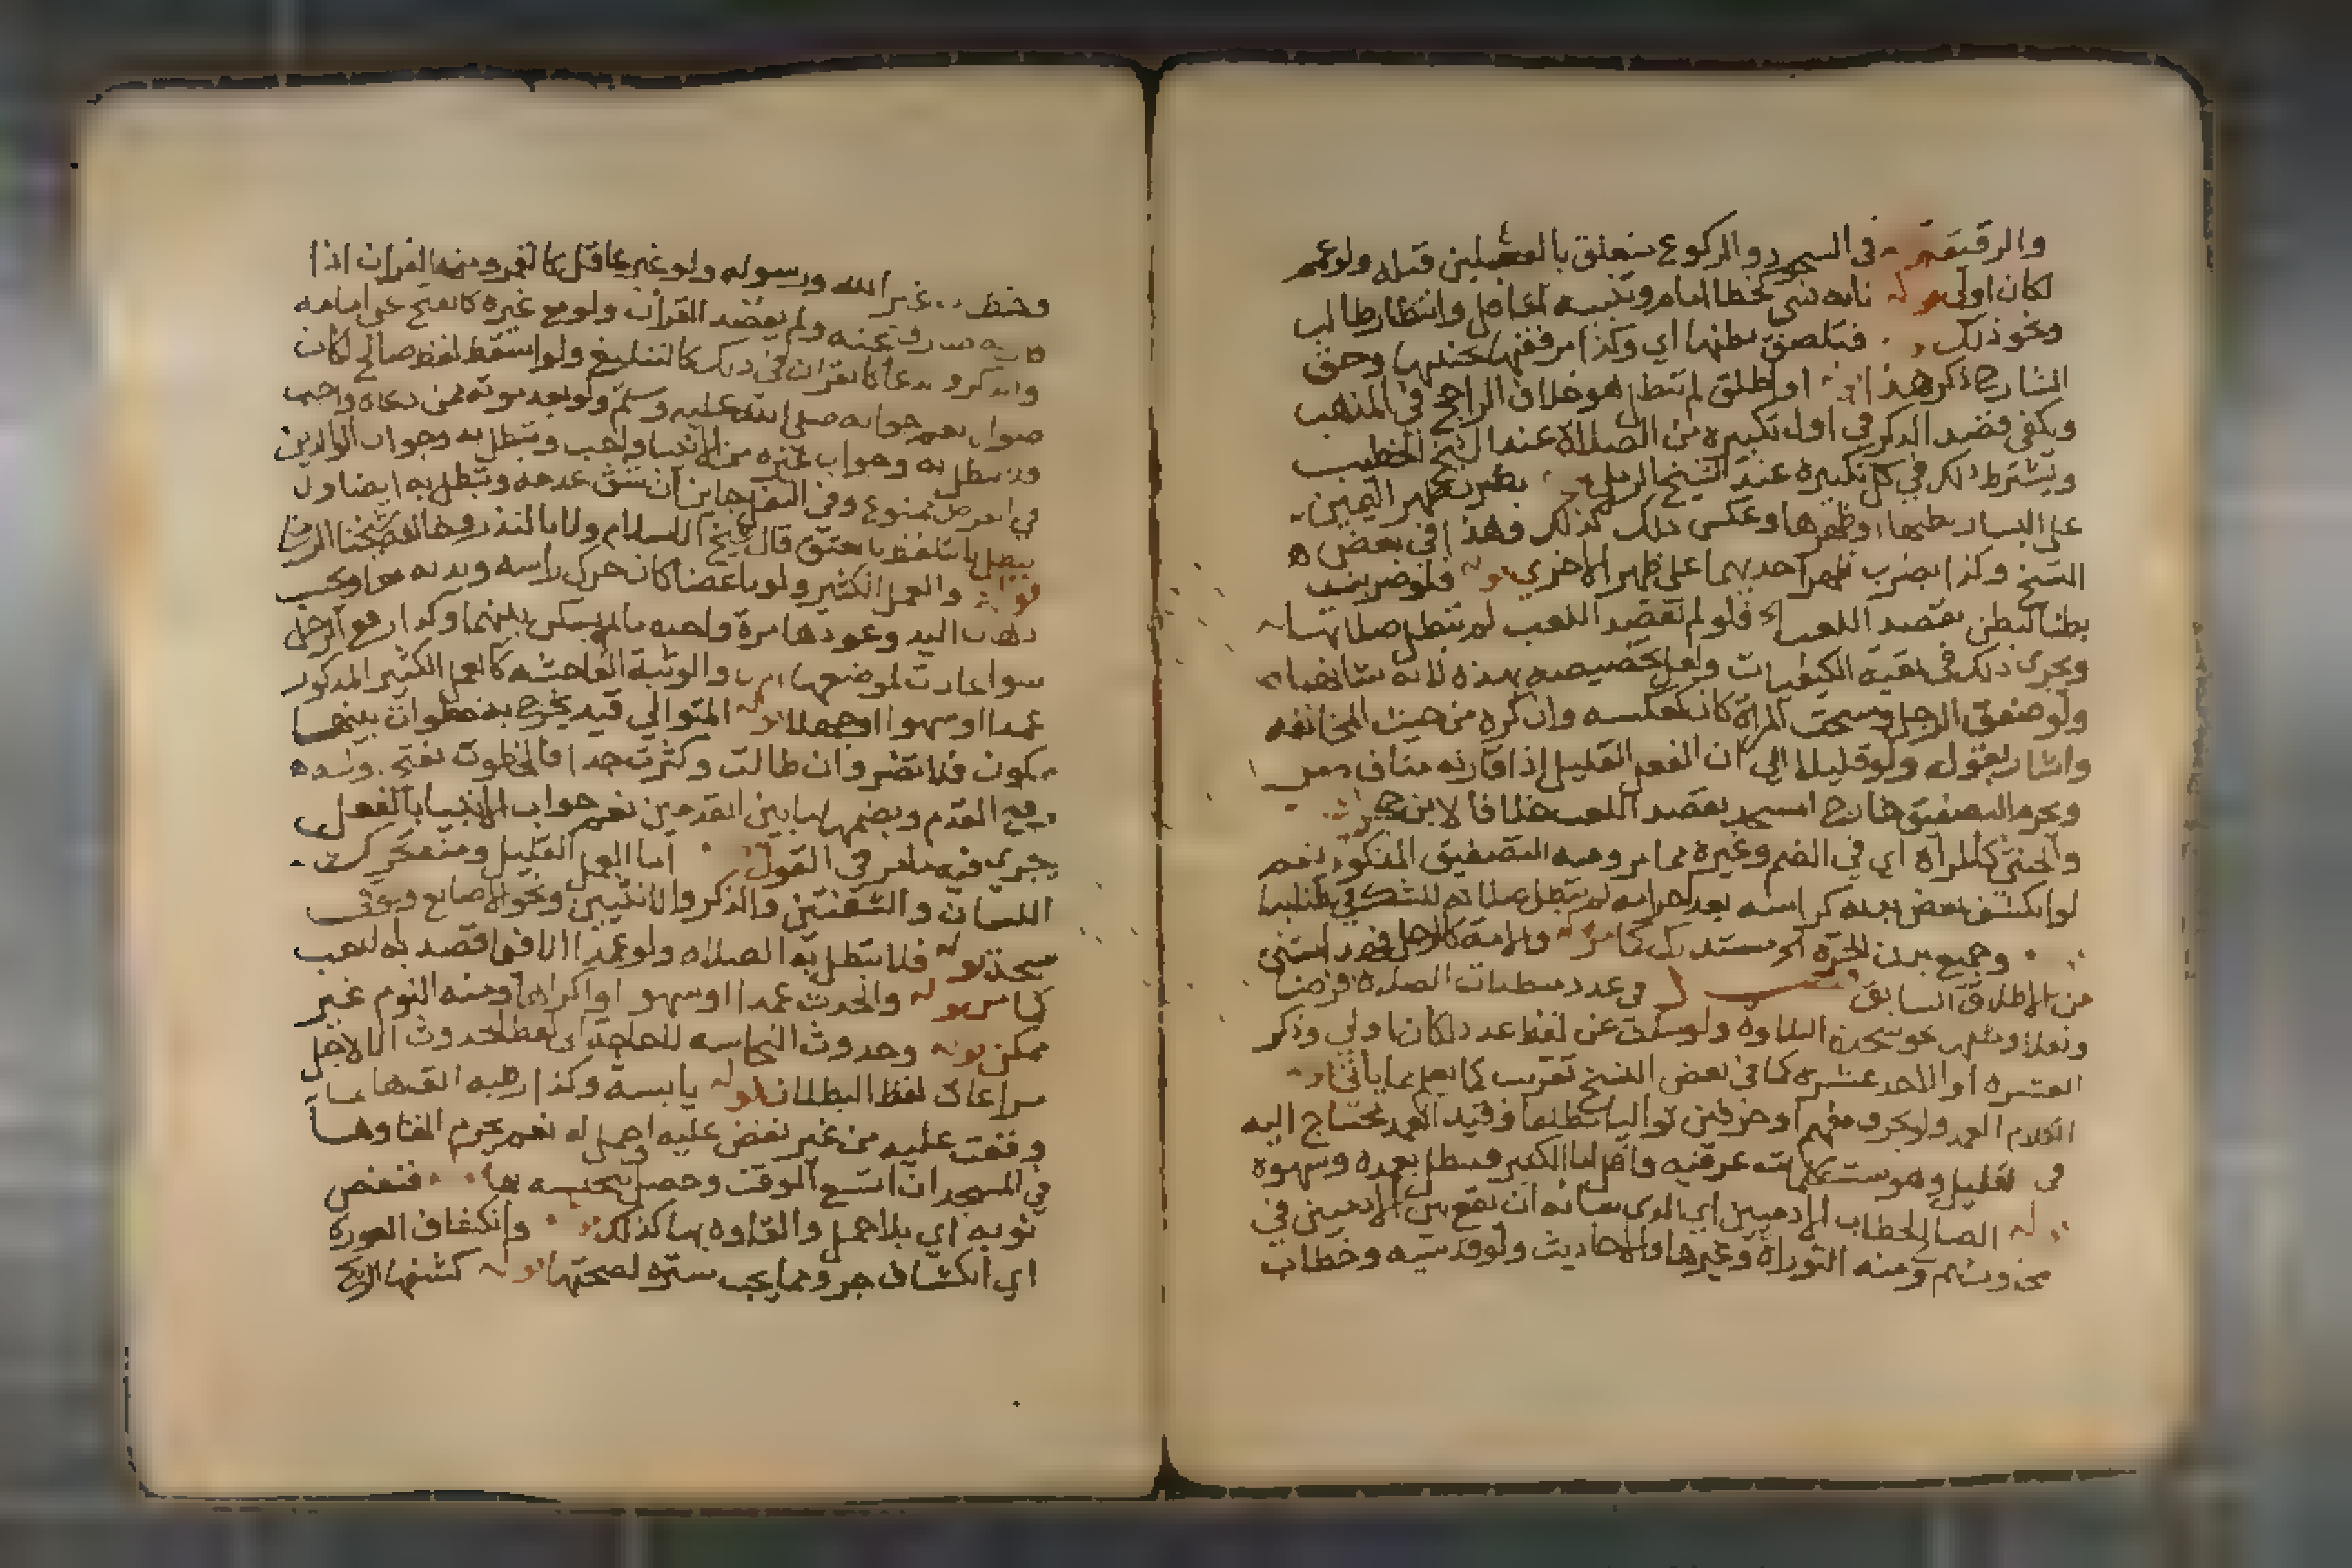 والرقيقة في السجود والركوع متعلق بالفعلين قبله ولو عمم
لكان اولى قوله نابه شي كخطا امام وتنبيه لغافل وانتظار طالب
ونحو ذلك فتلصق بطنها اي وكذا مرفقها بجنبيها وحق
الشارح ذكر هذا او اطلق لم تبطل هو خلاف الراجح في المذهب
ويكفي قصد الذكر في اول تكبيره من الصلاة عند الشيخ الخطيب
ويشترط ذلك في كل تكبيره عند الشيخ الرملي بضرب ظهر اليمين
على اليسار بطنها او ظهرها وعكس ذلك كذلك وهذا في بعض
النسخ وكذا بضرب ظهر احديهما على ظهر الاخرى قوله فلو ضربت
بطنا لبطن بقصد اللعب اء فلو لم تقصد اللعب لم تبطل صلاتها
ويجري ذلك في بقية الكيفيات ولعل تخصيصه بهذه لانه شانها
ولو صفق الرجل وسبحت المراة كان كعكسه وان كره من حيث المخالفه
واشار بقوله ولو قليلا الى ان الفعل القليل اذا قارنه مناف
ويحرم التصفيق خارج المسجد بقصد اللعب خلافا لابن حجر
والخنثى كالمرأة اي في الضم وغيره مما مر ومنه التصفيق المذكور نعم
لو انكشف بعض بدنه كراسه بعد احرامه لم تبطل صلاته للشك في
وجميع بدن الحرة آخر مستدرك كما مر قوله والامة كالرجل
من الاطلاق السابق في عدد مبطلات الصلاة فرضا
ونفلا ومثلهم نحو سجدة التلاوة ولو سكت عن لفظ عدد لكان اولى وذكر
العشره او الاحد عشرة كما في بعض النسخ تقريب كما يعلم مما ياتي
الكلام العمد ولو بحرف مفهم او حرفين تواليا وقيد العمد محتاج اليه
في القليل وهو ست كلمات عرفيه واقل اما الكثير فيبطل بعمده وسهوه
قوله الصالح لخطاب الادميين اي الذي شانه ان يقع بين الادميين في
محاوراتهم ومنه التوراة وغيرها والاحاديث ولو قدسيه وخطاب
وخطاب غير الله ورسوله ولو غير عاقل كالقمر ومنه القران اذا
صارف عنه ولم يقصد القران ولو مع غيره كالفتح على امامه
والذكر والدعا كالقران في ذلك كالتبليغ ولو اسقط لفظ صالح لكان
صواب نعم جوابه صلى الله عليه وسلم ولو بعد موته ممن دعاه واجب
ولا تبطل به وجواب غيره من الانبيا واجب وتبطل به وجواب الوالدين
في الفرض ممنوع وفي النفل جايز ان شق عدمه وتبطل به ايضا ولا
يبطل بالتلفظ بالعتق قال شيخ الاسلام ولا بالنذر وخالفه شيخنا
قوله والعمل الكثير ولو باعضا كان حرك راسه ويديه معا ويحسب
ذهاب اليد وعودها مرة واحده ما لم يسكن بينهما وكذا رفع الرجل
سوا عادت لموضعها ام لا والوثبة الفاحشه كالعمل الكثير المذكور
عمدا او سهوا او جهلا قوله المتوالي قيد يخرج به خطوات بينها
سكون فلا تضر وان طالت وكثرت جدا فالخطوة بفتح
رفع القدم وبضمها ما بين القدمين نعم جواب الانبيا بالفعل
يجري فيه ما مر في القول اما العمل القليل ومنه تحريك
اللسان والشفتين والذكر والانثيين ونحو الاصابع
قوله فلا تبطل به الصلاه ولو عمدا الا ان قصد به لعب
كما مر قوله والحدث عمدا او سهوا او اكراها ومنه النوم غير
ممكن قوله وحدوث النجاسه لفظ حدوث الا لاجل
مراعاة لفظ البطلان قوله يابسة وكذا رطبه القاها
وقعت عليه من غير نفض عليه او حمل له نعم يحرم القاوها
في المسجد ان اتسع الوقت وحصل تنجيسه بها فنفض
ثوبه اي بلا حمل والقاوه بها كذلك وانكشاف العورة
اي انكشاف جزو مما يجب ستره لصحتها قوله كشفها الريح